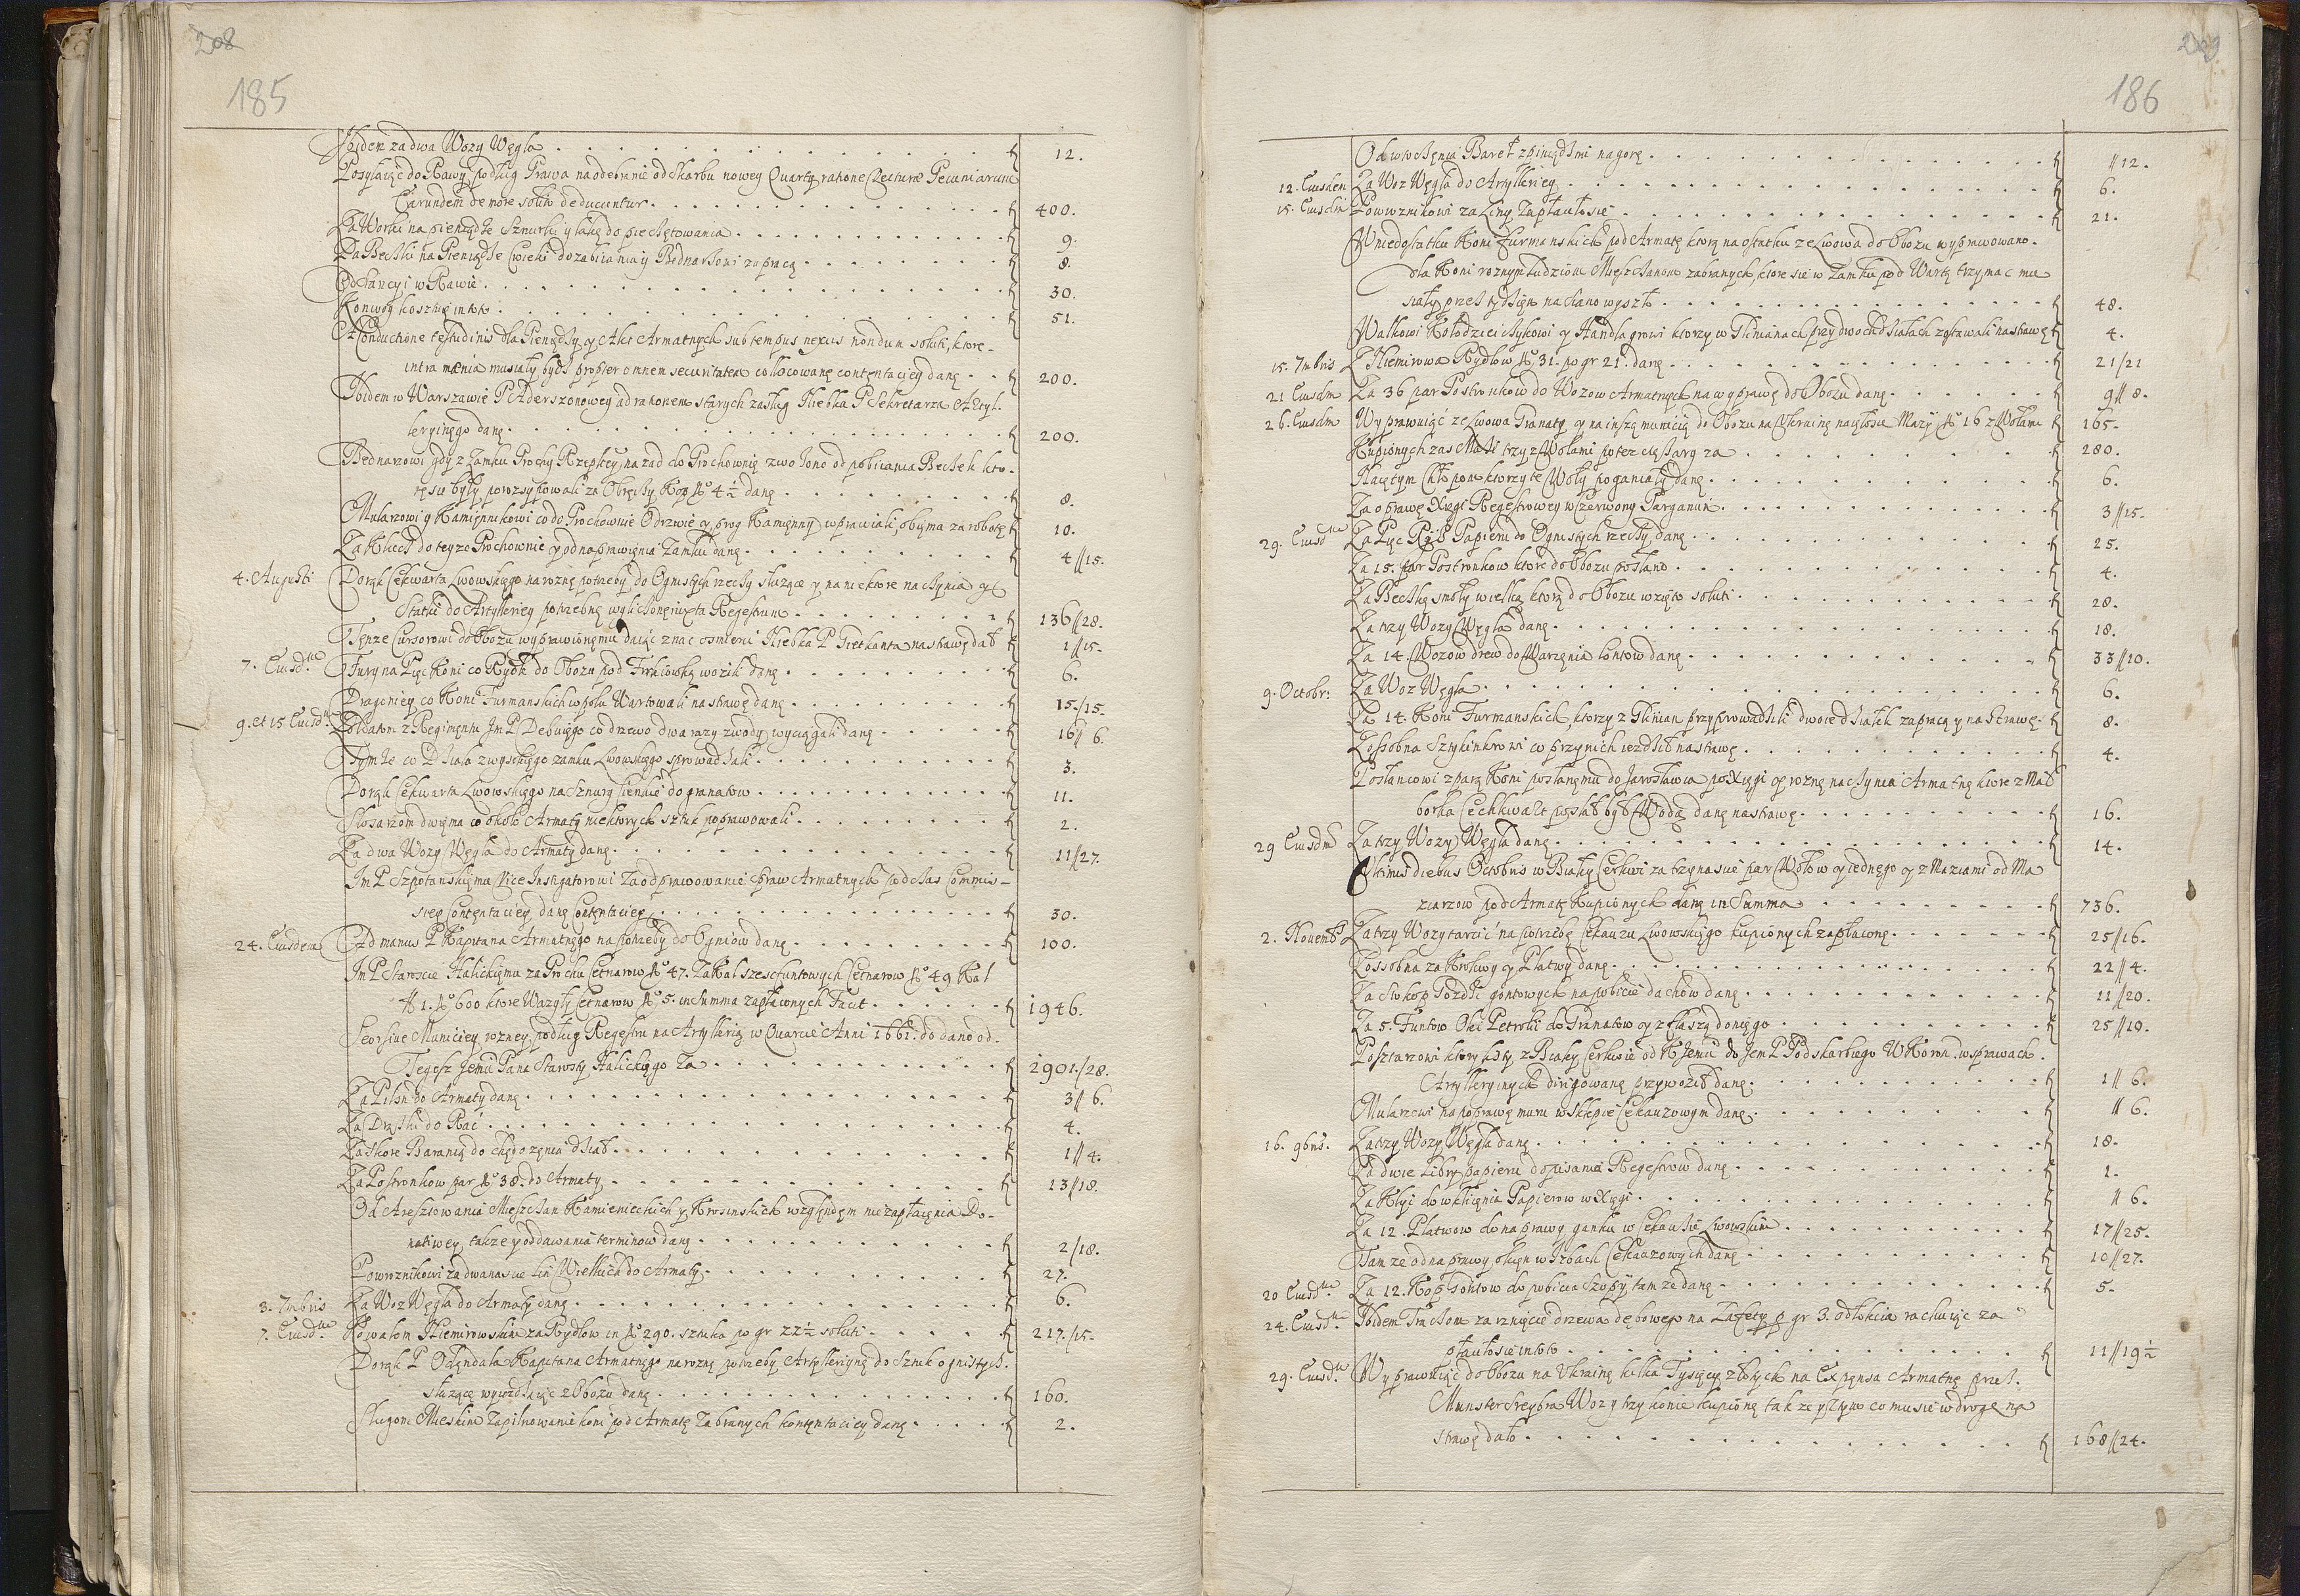 208
185
Ibidem za dwa Wozy Węgla 12.
Posyłaiąc do Rawy podług Prawa na odebranie od Skarbu nowey Quarty ratione Lecturæ Pecuniarum
Earundem de more solito deducuntur 400.
Za Worki na pieniądze Sznurki y lakę do pieczętowania 9.
Za Beczki na Pieniądze Cwieki do zabiiania y Bednarzowi za pracą 8.
Od Stancyi w Rawie 30.
Konwoy kosztuię in toto 51.
A Conductione testudinis dla Pieniędzy y Akt Armatnych sub tempus nexus nondum soluti, które
intra mænia musiały bydź propter omnem securitatem collocowane contentaciey danę 200.
Ibidem w Warszawie P Aderszonowey ad rationem starych zasług Nieboka P Sekretarza Artyl-
leryinęgo danę 200.
Bednarzowi gdy z Zamku Prochy Rzeptey nazad do Prochownie zwożono od pobiiania Beczek kto-
rę się były porozsypowali za Obręczy Kop No 4½ danę 8.
Mularzowi y Kamięnnikowi co do Prochownie Odrzwie y prog Kamięnny wprawiali, obiema za robotę 10.
Za Kłuch do teyze Prochownie y od naprawięnia Zamku danę 4//15.
4. Augusti Do rąk Cekwarta Lwowskięgo na roznę potrzeby do Ognistych rzeczy słuzące y na niektore naczynia y
Statki do Artylleriey potrzebnę wyliczonę iuxta Regestrum 136//28.
Tęnze Cursorowi do Obozu wyprawionęmu daiąc znac o smierci Nieboka P Getkanta na strawę dał 1//15.
7. Eiusdm Furÿ na Pięc Koni co Rydle do Obozu pod woźili danę 6.
Dragoniey co Koni Furmanskich w polu Wartowali na strawę danę 15./15.
9. et 15 Eiusdm Zołdatom z Regimęntu Jm P Debuięgo co drzewo dwa razy z wody wyciągali danę 16// 6.
Tymze co Działa z wysokięgo zamku Lwowskięgo sprowadzali 3.
Do rąk Cekwarta Lwowskięgo na Sznury Cienkie do granatow 11.
Slosarzom dwięma co około Armaty niektorych sztuk poprawowali 2.
Za dwa Wozy Węgla do Armaty danę 11//27.
Jm P Szpotanskięmu Vice Instigatorowi Za odprawowanie spraw Armatnych podczas Commis-
siey Contentaciey danę Contentaciey 30.
24. Eiusdem Ad manus P Kapitana Armatnęgo na potrzeby do Ogniow danę 100.
Jm P Staroscie Halickięmu za Prochu Cetnarow No 47. Za Kul szescfuntowych Cetnarow No 49 Kul
1. No 600 ktore Wazyły Cetnarow No 5. in Summa zapłaconych Facit 1946.
Seorsive Municiey rozney podług Regestru na Artyllerią w Quarcie Anni 1661. do dano od
Tegosz Jemci Pana Starosty Halickięgo Za 2901./28.
Za Pilsn do Armaty danę 3// 6.
Za Drązki do Rać 4.
Za Skore Baranią do chędozęnia dział 1//4.
Za Postronkow par No 38. do Armaty 13//18.
Od Aresztowania Mieszczan Kamienieckich y Krosinskich względęm niezapłacęnia Do-
natiwey, takze y oddawania terminow danę 2/18.
Powroznikowi za dwanascie Lin Wielkich do Armaty 27.
3. 7mbris Za Woz Węgla do Armaty danę 6.
7. Eiusdm Kowalom Niemirowskim za Rydlow in No 290. sztuka po gr 22½ soluti 217./15.
Do rąk P Odęndala Kapitana Armatnęgo na roznę potrzeby Artylleriynę do Sztuk ognistych
słuzącę wyiezdzaiąc z Obozu danę 160.
Sługom Mieskim Za pilnowanie koni pod Armatę Zabranych kontentaciey danę 2.
209
186
Od wtoczęnia Baref z pieniądźmi na gorę //12.
12. Eiusdem Za Woz Węgla do Artylleriey 6.
15. Eiusdm Powroznikowi za Liny Zapłaciło się 21.
W niedostatku Koni furmanskich pod Armatę ktorą na ostatku ze Lwowa do Obozu wyprawowano.
dla Koni roznym ludziom Mieszczanom zabranych, ktore się w Zamku pod Wartą trzymac mu
siały przez tydzięn na Siano wyszło 48.
Walkowi Kołodzieiczykowi y Handlagrowi ktorzy w Glinianach przy dwoch działach zostawali na strawę 4.
15. 7mbris Z Niemirowa Rydlow No 31. po gr 21. danę 21/21
21 Eiusdm Za 36 par Postronkow do Wozow Armatnych na wyprawę do Obozu danę 9//8.
26. Eiusdm Wyprawuiąc ze Lwowa Granaty y na inszę municią do Obozu na Ukrainę naięłosię Mazÿ No 16 z Wołami 165.
Kupionych zas Maź trzy z Wołami po też ciężary za 280.
Naiętym Chłopom ktorzy te Woły poganiali danę 6.
Za oprawę Xięgi Regestrowey w Czerwony Pargamin 3//15.
29. Eiusdm Za Pięc Ryz Papieru do Ognistych rzeczy danę 25.
Za 15. par Postronkow ktore do Obozu posłano 4.
Za Beczkę smoły wielką ktorą do Obozu wzięto soluti 28.
Za trzy Wozy Węgla danę 18.
Za 14. Wozow drew do Warzęnia Lontow danę 33//10.
9. Octobr: Za Woz Węgla 6.
Za 14. Koni Furmanskich, ktorzy z Glinian przyprowadzili dwoie działek za pracą y na Strawę 8.
Zossobna Sztykiunkrowi co przy nich iezdził na strawę 4.
Posłancowi z parą Koni posłanęmu do Jarosławia po Xięgi y roznę naczynia Armatnę ktore z Mal
borka Cechkwalt posłał był Wodą danę na strawę 16.
29 Eiusdm Za trzy Wozy Węgla danę 14.
Ultimis diebus Octobris w Białey Cerkwi za trzynascie par Wołow y iednęgo y z Maziami od Ma
ziarzow pod Armatę Kupionych danę in Summa 736.
2. Nouembr Za trzy Wozy tarcic na potrzebę Cekauzu Lwowskięgo kupionych zapłaconę 25//16.
Zossobna za Krokwy y Płatwy danę 22//4.
Za Sto kop Gozdzi gontowych na pobicie dachow danę 11//20.
Za 5. Funtow Olei Petroliei do Granatow y z flaszą do nięgo 25//10.
Posztarzowi ktory listy z Białey Cerkwie od K Jemci do Jem P Podskarbiego W Koron: w sprawach
Artylleryinych dirigowanę przywoźił danę 1// 6.
Mularzowi na poprawę muru w Sklepie Cekauzowym danę // 6.
16. 9bris. Za trzy Wozy Węgla danę 18.
Za dwie Libry papieru do pisania Regestrow danę 1.
Za Klyi do wklięnia Papierow w Xięgi // 6.
Za 12. Płatwow do naprawy ganku w Cekauzie Lwowskim 17//25.
Tam ze od naprawy okięn w Izbach Cekauzowych danę 10//27.
20 Eiusdm Za 12. Kop Gontow do pobicia Szopy tamze danę 5.
24. Eiusdm Ibidem Traczom za rznięcie drzewa dębowego na Lozety p gr 3. od łokcia rachuiąc za
płaciło się in toto 11//19½
29. Eiusdm Wyprawuiąc do Obozu na Ukrainę kilka Tysięcy złotych na Expęnsa Armatnę przez
Munstersreybra Woz y trzy konie kupionę także y z tym co mu się w drogę na
strawę dało 168//24.